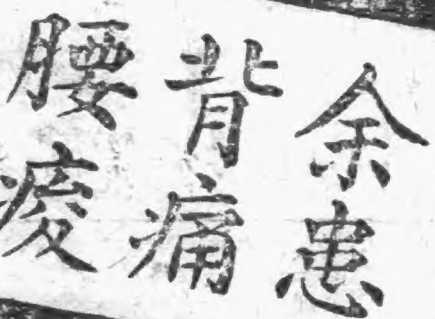 余患
背痛
腰痠